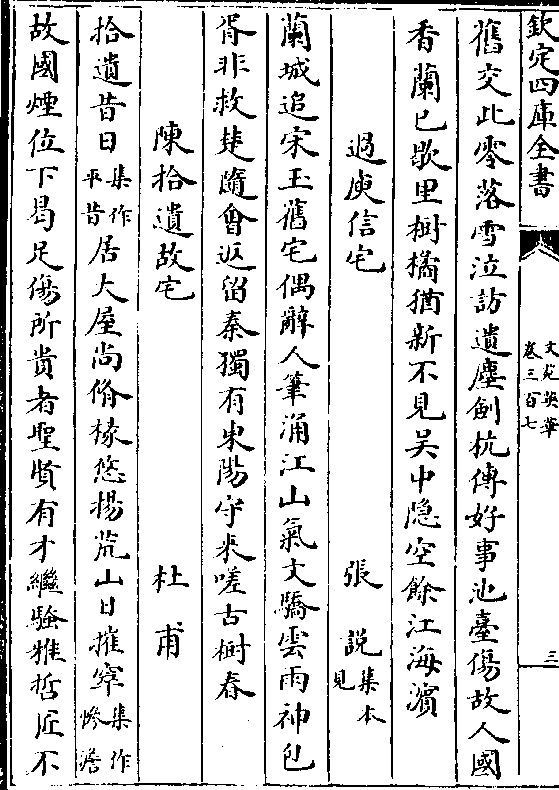 欽定四庫全書
文苑英華
卷三百七
三
舊交此零落雪泣訪遺塵劍杭傳好事池臺傷故人國
香蘭已歇里樹橘猶新不見吳中隐空餘江海濱
過庾信宅
張説集本見
蘭城追宋玉舊宅偶辭人筆涌江山氣文驕雲雨神包
胥非救楚隨會返留秦獨有東陽守來嗟古樹春
陳拾遺故宅
杜甫
拾遺昔日集作平昔居大屋尚脩椽悠揚荒山日摧窣集作慘澹
故國煙位下曷足傷所贵者聖賢有才繼騷雅哲匠不